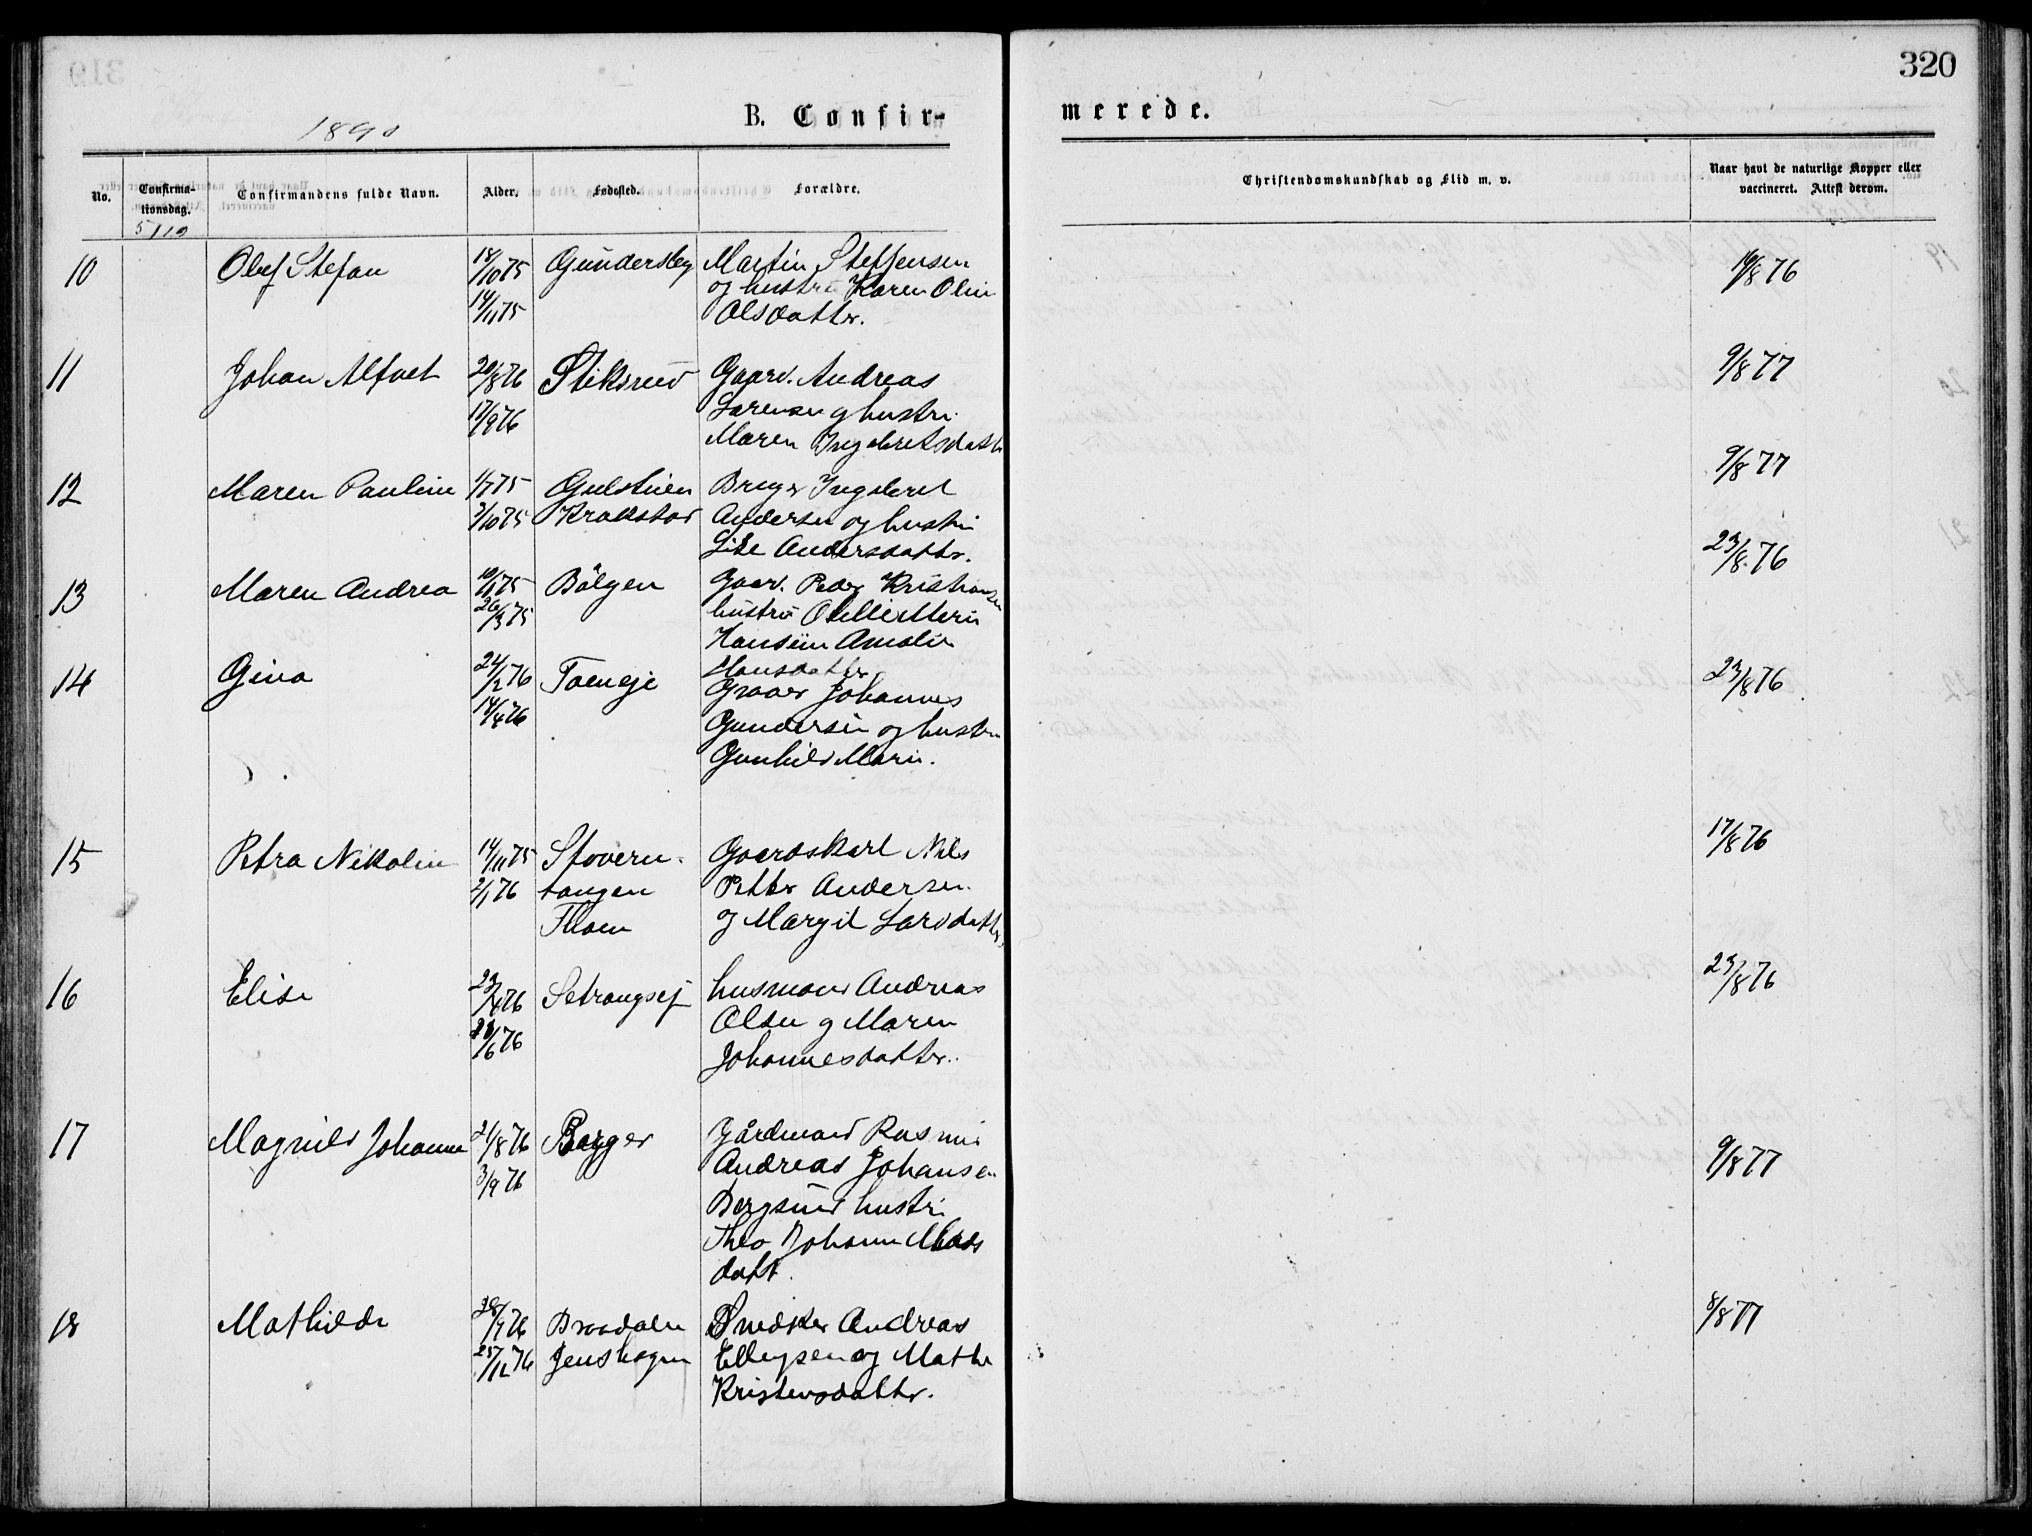 319
320
1890
B. Confir-
merede.
No.
Confirma-
tionsdag.
Confirmandens fulde Navn.
Alder.
Fødested.
Forældre.
Christendomskundskab og Flid m. v.
Naar havt de naturlige Kopper eller
vaccineret. Attest derom.
5/10
10 Olef Stefan 18/10 75 Gundersby Martin Steffensen 14/8 76
og hustru Karen Olin
14/11 75 Olsdatter.
11 Johan Alfret 20/8 76 Stiksrud Gaard. Andreas 9/8 77
17/9 76 Larensen og hustru
Maren Ingebretsdattr
12 Maren Paulin 1/7 75 Gulstuen Bruger Ingebret 9/8 77
3/10 75 Krakstad Andersen og hustru
Lise Andersdattr.
13 Maren Andrea 10/1 75 Bölgen Gaard. Peder Kristiansen 23/8 76
26/3 75 hustru
Hansiin Amalie
Hansdatter
14 Gina 24/2 76 Taneje Gaard Johannes 23/8 76
14/4 76 Gundersen og hustru
Gunhild Marie.
15 Petra Nikolin 14/11 75 Stovern- Gaardskarl Nils 17/8 76
2/1 76 tangen Petter Andersen
Thom og Margit Larsdattr.
16 Elise 23/4 76 Setrangsej husmand Andreas 23/8 76
/6 76 Olsen og Maren
Johannesdatter.
17 Magnild Johanne 21/8 76 Berger Gårdmand Rasmus 9/8 77
3/9 76 Andreas Johansen
Bergsund hustru
Thea Johann Mads
datt.
18 Mathilde 28/9 76 Snedker Andreas 8/8 77
25/12 76 Jenshagen Ellingsen og Mathe
Kristensdattr.